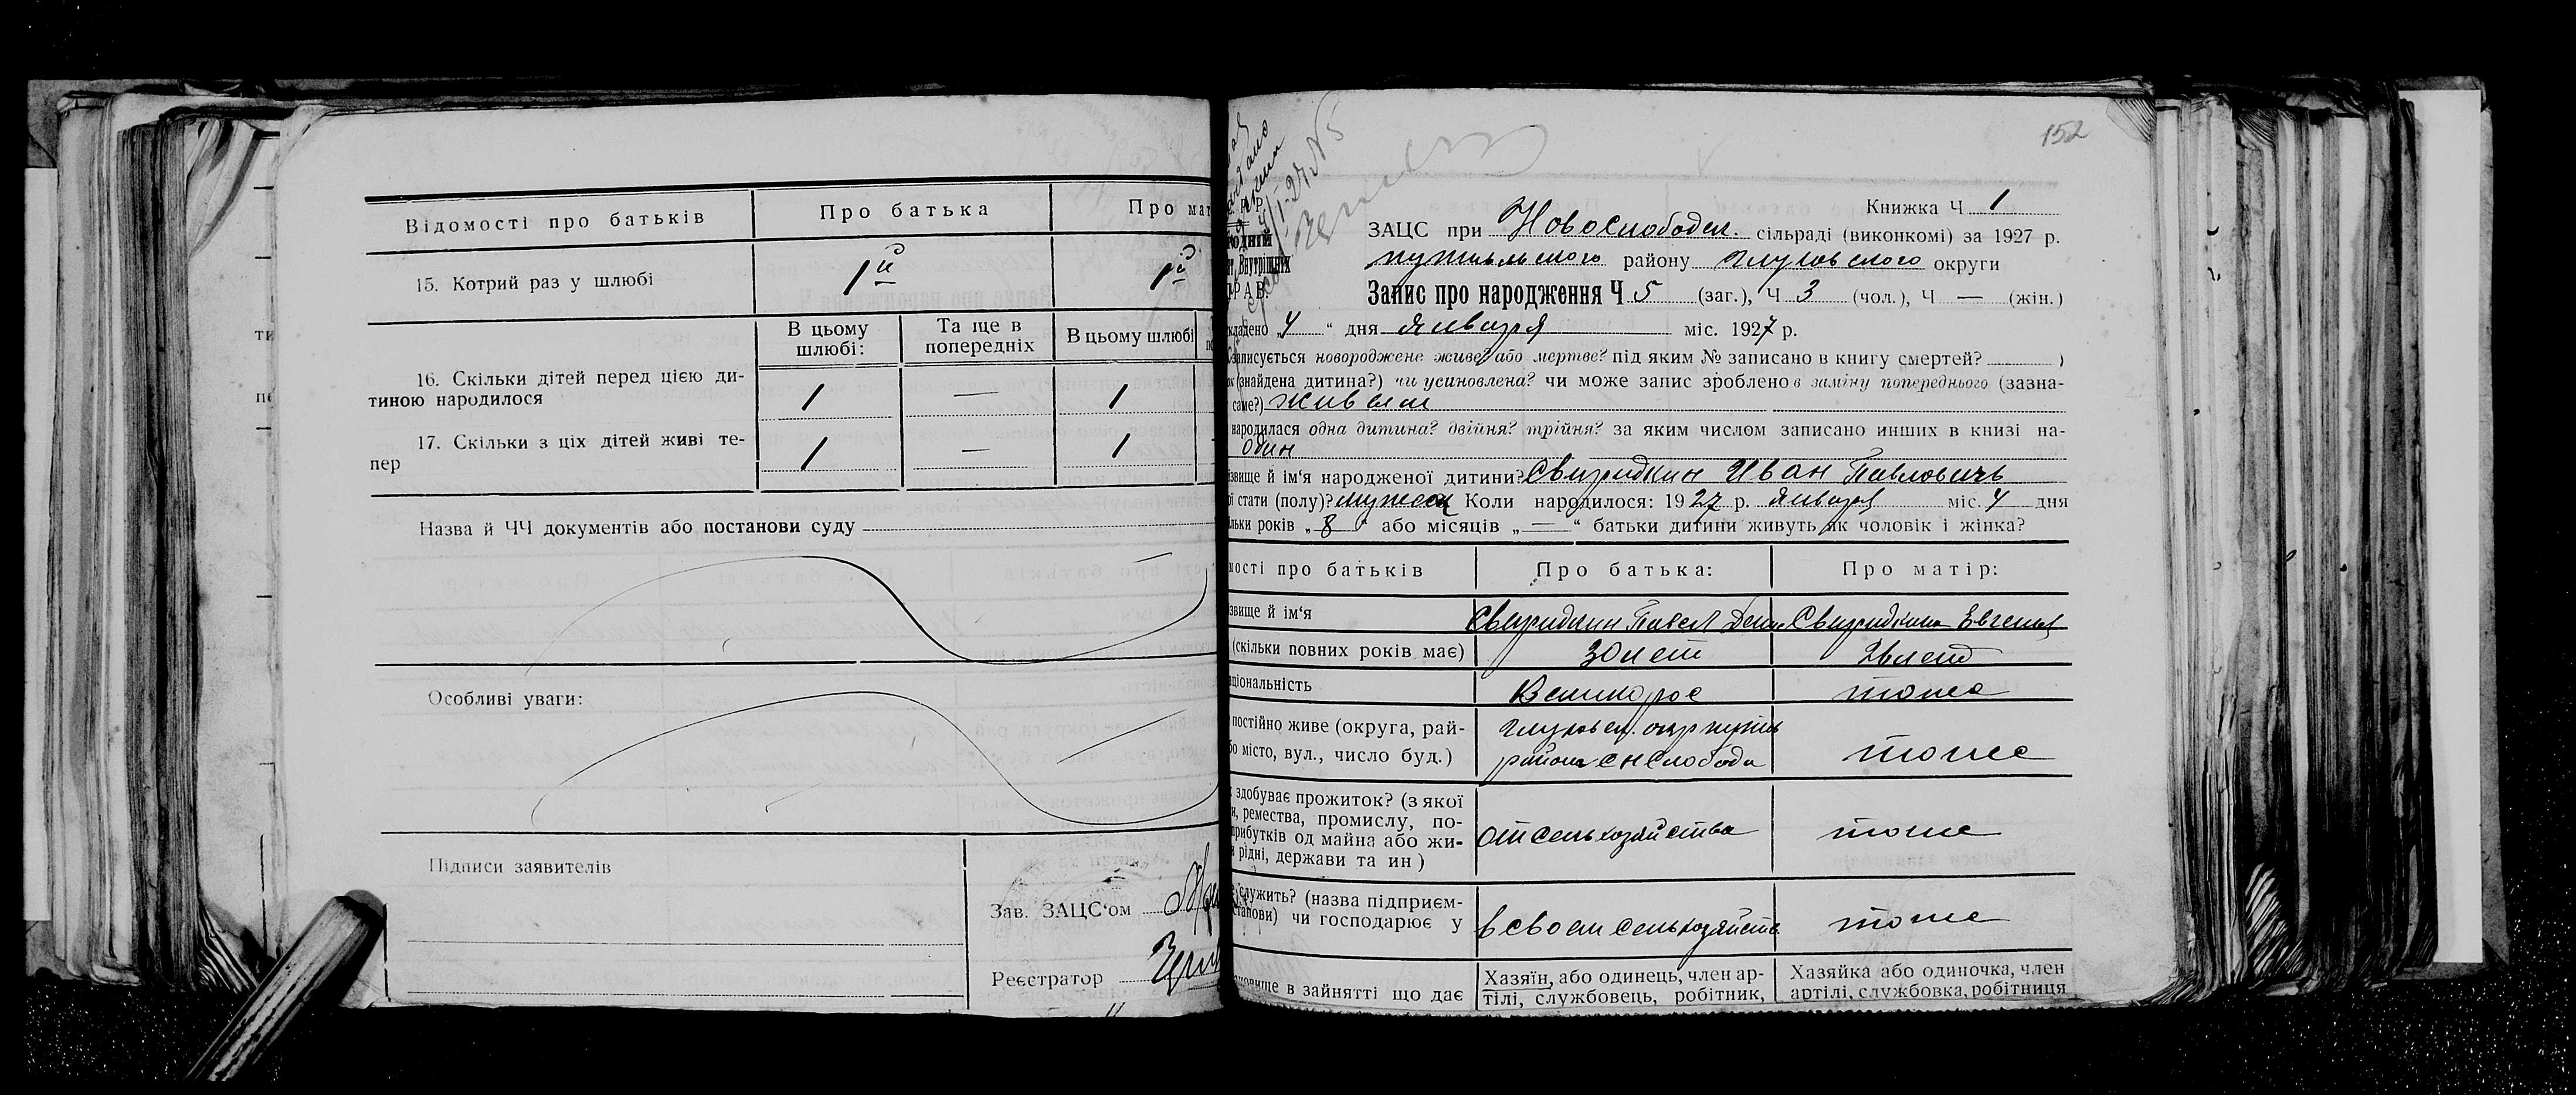 Відомості про батьків
Про батька
Про мат
15. Котрий раз у шлюбі
1й
1й
В цьому шлюбі:
Та ще в попередніх
В цьому шлюбі
16. Скільки дітей перед цією ди-
тиною народилося
1
—
1
17. Скільки з ціх дітей живі те-
пер
1
—
1
Назва й ЧЧ документів або постанови суду
Особливі уваги:
Підписи заявителів
Зав. ЗАЦС'ом
Реєстратор
152
Книжка Ч 1
ЗАЦС при Новослободск. сільраді (виконкомі) за 1927 р.
путивльского району глуховского округи
Запис про народження Ч 5 (заг.), Ч 3 (чол.), Ч — (жін.)
кладено „4“ дня января міс. 1927 р.
записується новороджене живе? або мертве? під яким № записано в книгу смертей? )
(знайдена дитина?) чи усиновлена? чи може запис зроблено в заміну попереднього (зазна-
саме?) живым
народилася одна дитина? двійня? трійня? за яким числом записано инших в книзі на-
один
звище й ім'я народженої дитини? Свиридкин Иван Павловичь
стати (полу)? мужск Коли народилося: 1927 р. января міс. 4 дня
льки років „8“ або місяців „—“ батьки дитини живуть як чоловік і жінка?
мості про батьків
Про батька:
Про матір:
звище й ім'я
Свиридкин Павел Дени
Свиридкина Евгения
(скільки повних років має)
30 лет
26 лет
ціональність
Великорос
тоже
постійно живе (округа, рай-
бо місто, вул., число буд.)
глуховск. окр путив
района с Н Слобода
тоже
здобуває прожиток? (з якої
и, ремества, промислу, по-
прибутків од майна або жи-
и рідні, держави та ин)
от сельхозяйства
тоже
служить? (назва підприєм-
станови) чи господарює у
в своем сельхозяйств
тоже
новище в зайнятті що дає
Хазяїн, або одинець, член ар-
тілі, службовець, робітник,
Хазяйка або одиночка, член
артілі, службовка, робітниця